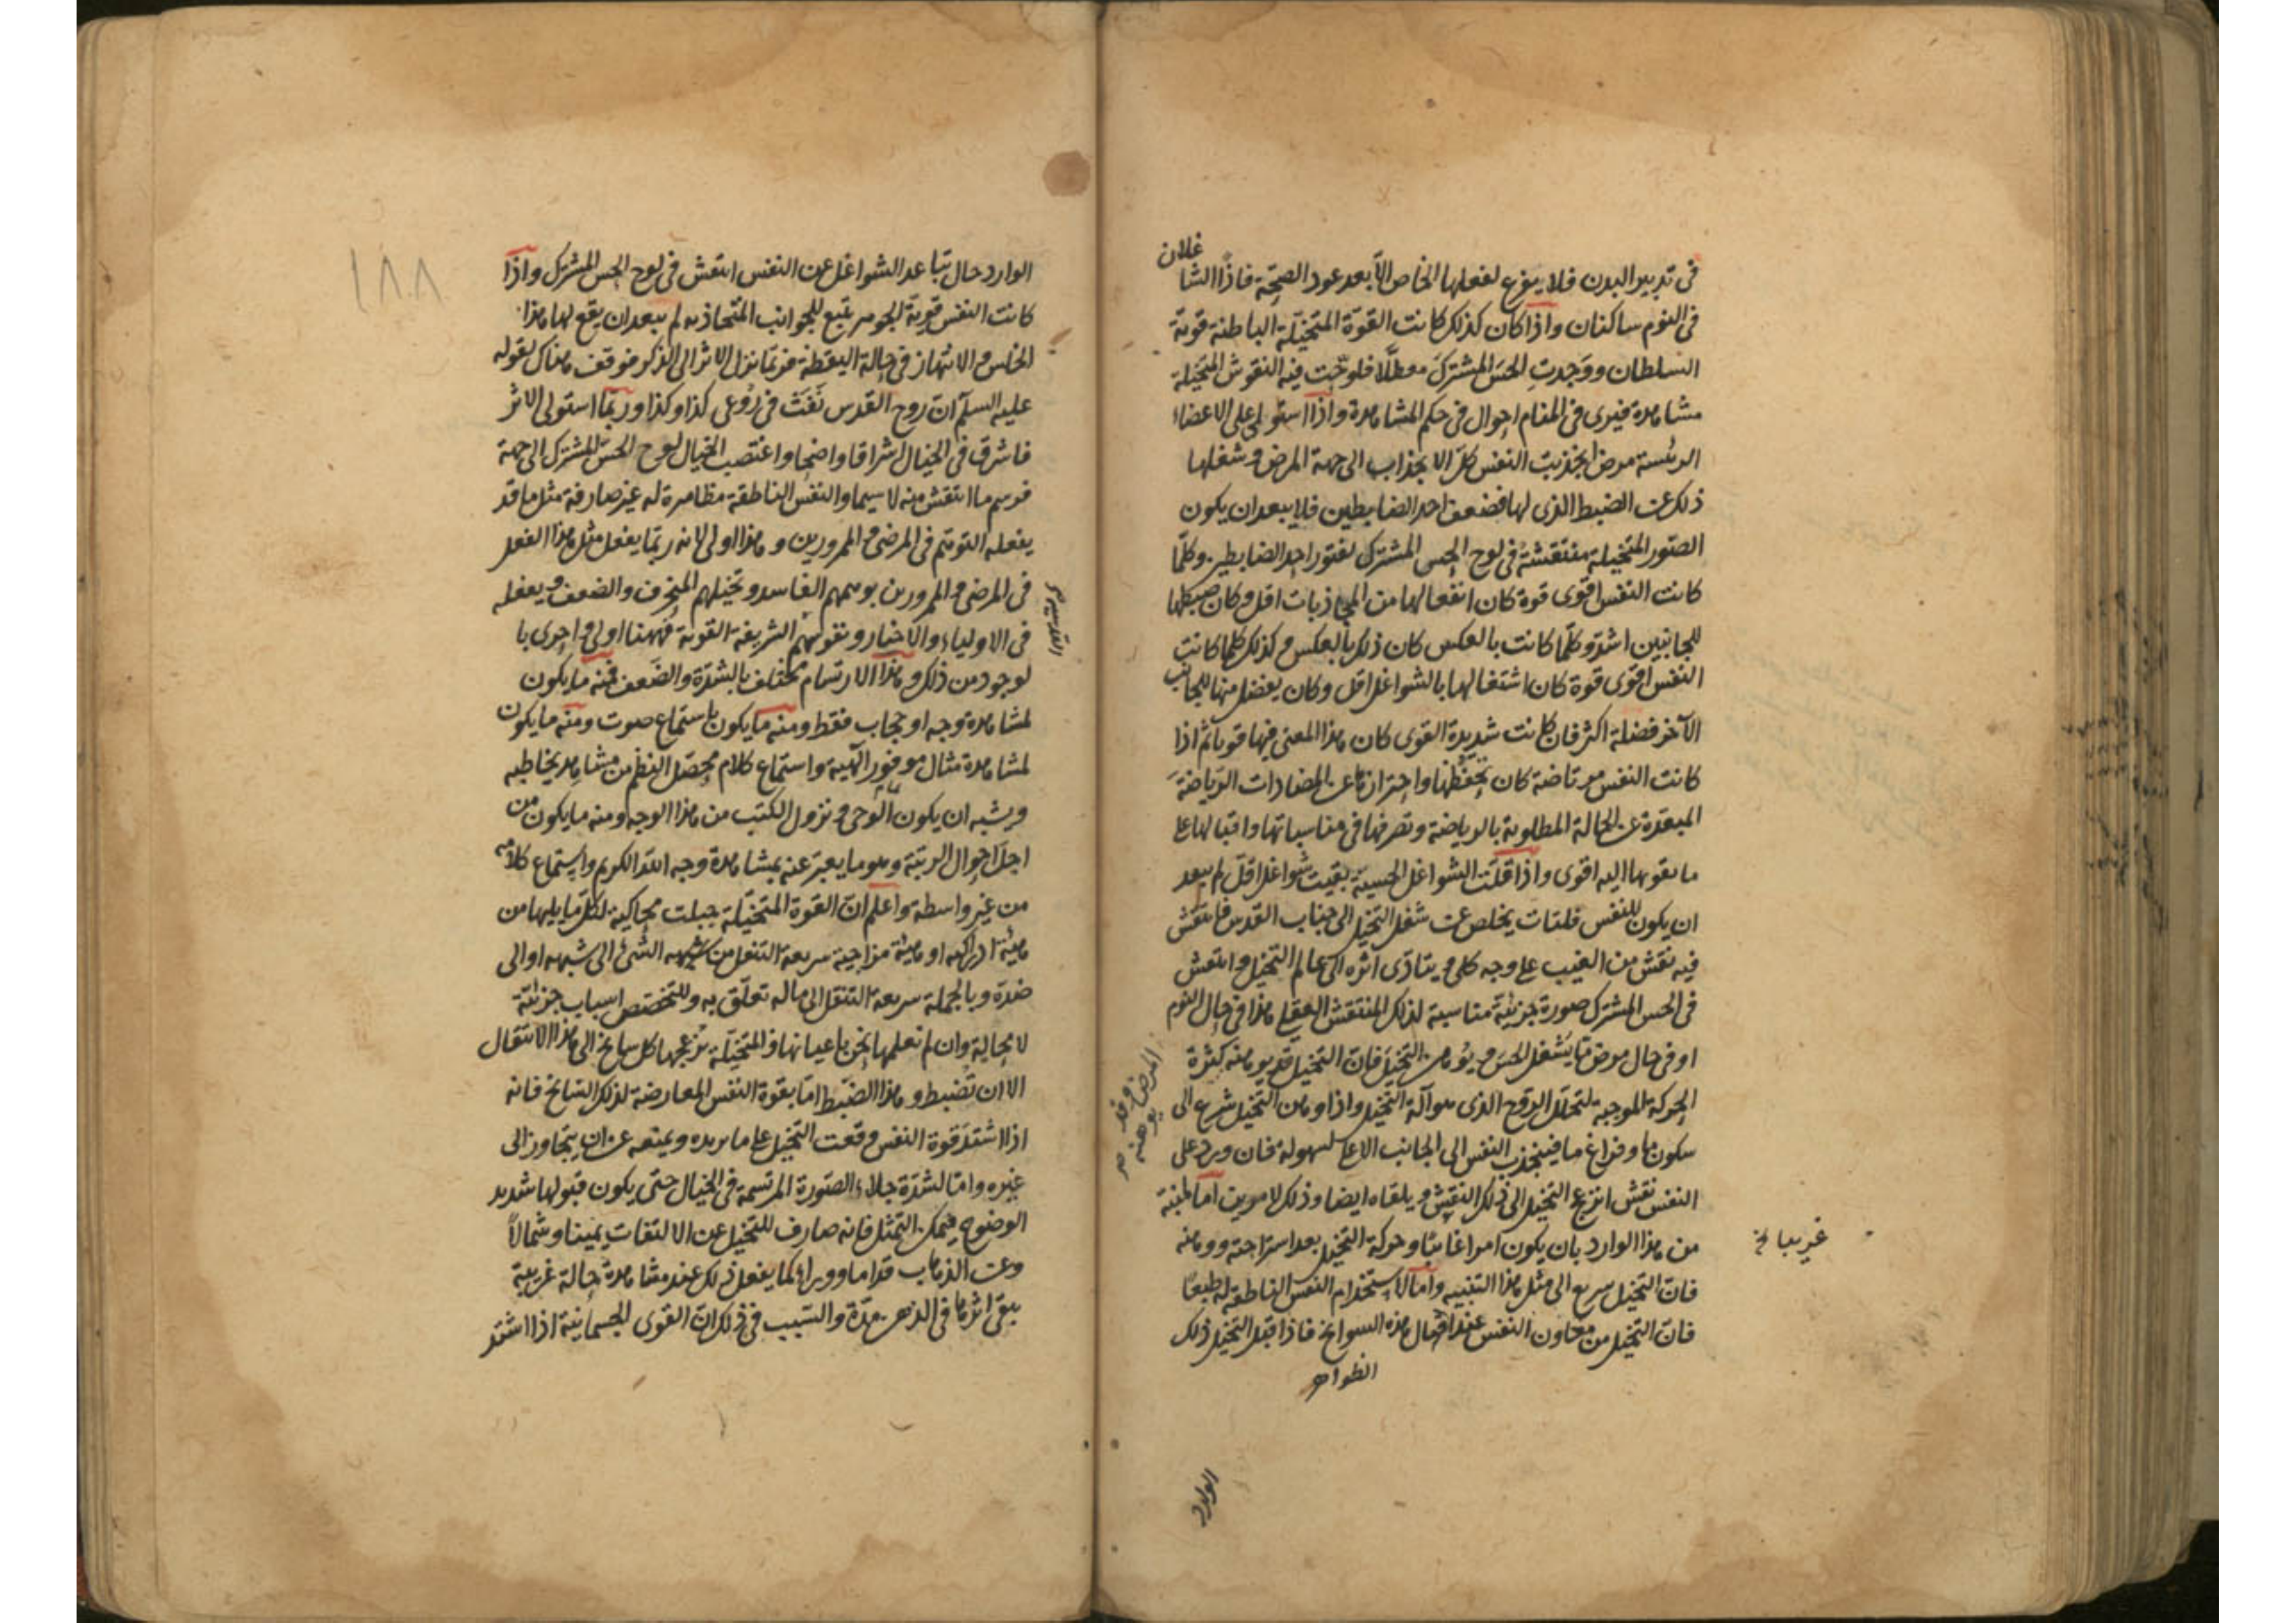 غلان
فى تدبير البدن فلا يفرغ لفعلها الخاص الّا بعد عود الصحّة فاذًا الشا
فى النوم ساكنان واذا كان كذلك كانت القوّة المتخيّلة الباطنة قويّة
السلطان ووَجدتِ الحسّ المشتركَ معطّلًا فلوّحت فيه النقوش المتخيلة
مشاهدة فيرى فى المنام احوال فى حكم المشاهدة واذا استولى على الاعضاء
الرئسة مرض انجذبت النفس كلّ الانجذاب الى جهة المرض وشغلها
ذلك عن الضبط الذى لها فضعف احد الضابطين فلا يبعد ان يكون
الصّور المتخيلة منتقشةً فى لوح الحس المشترك لفتور احد الضابطين وكلّما
كانت النفس اقوى قوة كان انفعالها من المجاذبات اقل وكان ضبطها
للجانبين اشدّ وكلّما كانت بالعكس كان ذلك بالعكس وكذلك كلما كانت
النفس اقوى قوة كان اشتغالها بالشواغل اقل وكان يفضل منها للجانب
الآخر فضلة اكثر فان كانت شديدة القوى كان هذا المعنى فيها قويا ثم اذا
كانت النفس مرتاضة كان تحفّظها واحترازها عن مضادات الرياضة
المبعّدة عن الحالة المطلوبة بالرياضة وتصرفها فى مناسباتها واقبالها على
ما يقربها اليه اقوى واذا قلّت الشواغل الحسية بقيت شواغل اقلّ لم يبعد
ان يكون للنفس فلتات يخلص عن شغل التخيل الى جناب القدس فانتقش
فيه نقش من الغيب على وجه كلى ويتادّى اثره الى عالم التخيل وانتقش
فى الحس المشترك صورة جزئية مناسبة لذلك المنتقش العقلى هذا فى حال النوم
او فى حال مرض ما يشغل الحسّ ويُوهن التخيّل فانّ التخيل قد يوهنه كثرة
الحركة الموجبة لتحلّل الروح الذى هو آلة التخيل واذا وهن التخيل شرع الى
سكون ما وفراغ ما فينجذب النفس الى الجانب الاعلى بسهولة فان ورد على
النفس نقش انزعج التخيل الى ذلك النقش ويلقاه ايضا وذلك لامرين اما لمنبّه
من هذا الوارد بان يكون امرا غائبا وحركة التخيل بعد استراحته ووهنه
فانّ التخيل سريع الى مثل هذا التنبيه واما لاستخدام النفس الناطقة له طبعًا
فانّ التخيل من معاون النفس عند امثال هذه السوانح فاذا قبل التخيل ذلك
المرض وقد يوهنه صح
غريبا خ
الوارد
الوارد حال تباعد الشواغل عن النفس انتقش فى لوح الحس المشترك واذا
كانت النفس قويّة الجوهر تسع للجوانب المتجاذبه لم يبعد ان يقع لها هذا
الخلس والانتهاز فى حالة اليقظة فربّما نزل الاثر الى الذكر فوقف هناك لقوله
عليه السلم انّ روح القدس نَفَثَ فى رُوْعى كذا وكذا وربّما استولى الاثر
فاشرق فى الخيال اشراقا واضحا واغتصب الخيال لوح الحسّ المشترك الى جهته
فرسم ما انتقش منه لا سيما والنفس الناطقة مظاهرة له غير صارفة مثل ما قد
يفعله التوهّم فى المرضى والممرورين وهذا اولى لانه ربّما يفعل مثل هذا الفعل
فى المرضى والممرورين بوهمهم الفاسد وتخيّلهم المنحرف والضعيف ويفعله
فى الاولياء والاخيار ونفوسهم الشريفة القوية فههنا اولى واحرى با
لوجود من ذلك وهذا الارتسام مختلف بالشدّة والضّعف فمنه ما يكون
لمشاهدة وجه او حجاب فقط ومنه ما يكون باستماع صوت ومنه ما يكون
لمشاهدة مثال موفور الهيئة واستماع كلام محصّل النظم من مشاهد يخاطبه
ويشبه ان يكون الوحى ونزول الكتب من هذا الوجه ومنه ما يكون من
اجلّ احوال الرتبة وهو ما يعبّر عنه بمشاهدة وجه الله الكريم واستماع كلامه
من غير واسطة واعلم انّ القوة المتخيّلة جبلت محاكية لكلّ ما يليها من
هيئة ادراكية او هيئة مزاجية سريعة التنقل من شبيه الشئ الى شبهه او الى
ضدّه وبالجملة سريعة التنقل الى ما له تعلّق به وللتخصّص اسباب جزئيّة
لا محالة وان لم نعلمها نحن باعيانها والمتخيّلة يزعجها كل سانح الى هذا الانتقال
الا ان تُضبط وهذا الضبط امّا بقوة النفس المعارضة لذلك السانح فانه
اذا اشتدّ قوة النفس وقفت التخيل على ما يريده ويمنعه عن ان يتجاوز الى
غيره وامّا لشدّة جلاء الصّورة المرتسمة فى الخيال حتى يكون قبولها شديد
الوضوح متمكّن التمثل فانه صارف للتخيل عن الالتفات يمينا وشمالًا
وعن الذهاب قداما ووراء كما يفعل ذلك عند مشاهدة حالة غريبة
يبقى اثرها فى الذهن مدّة والسّبب فى ذلك انّ القوى الجسمانية اذا اشتد
القدسية صح
١٨٨